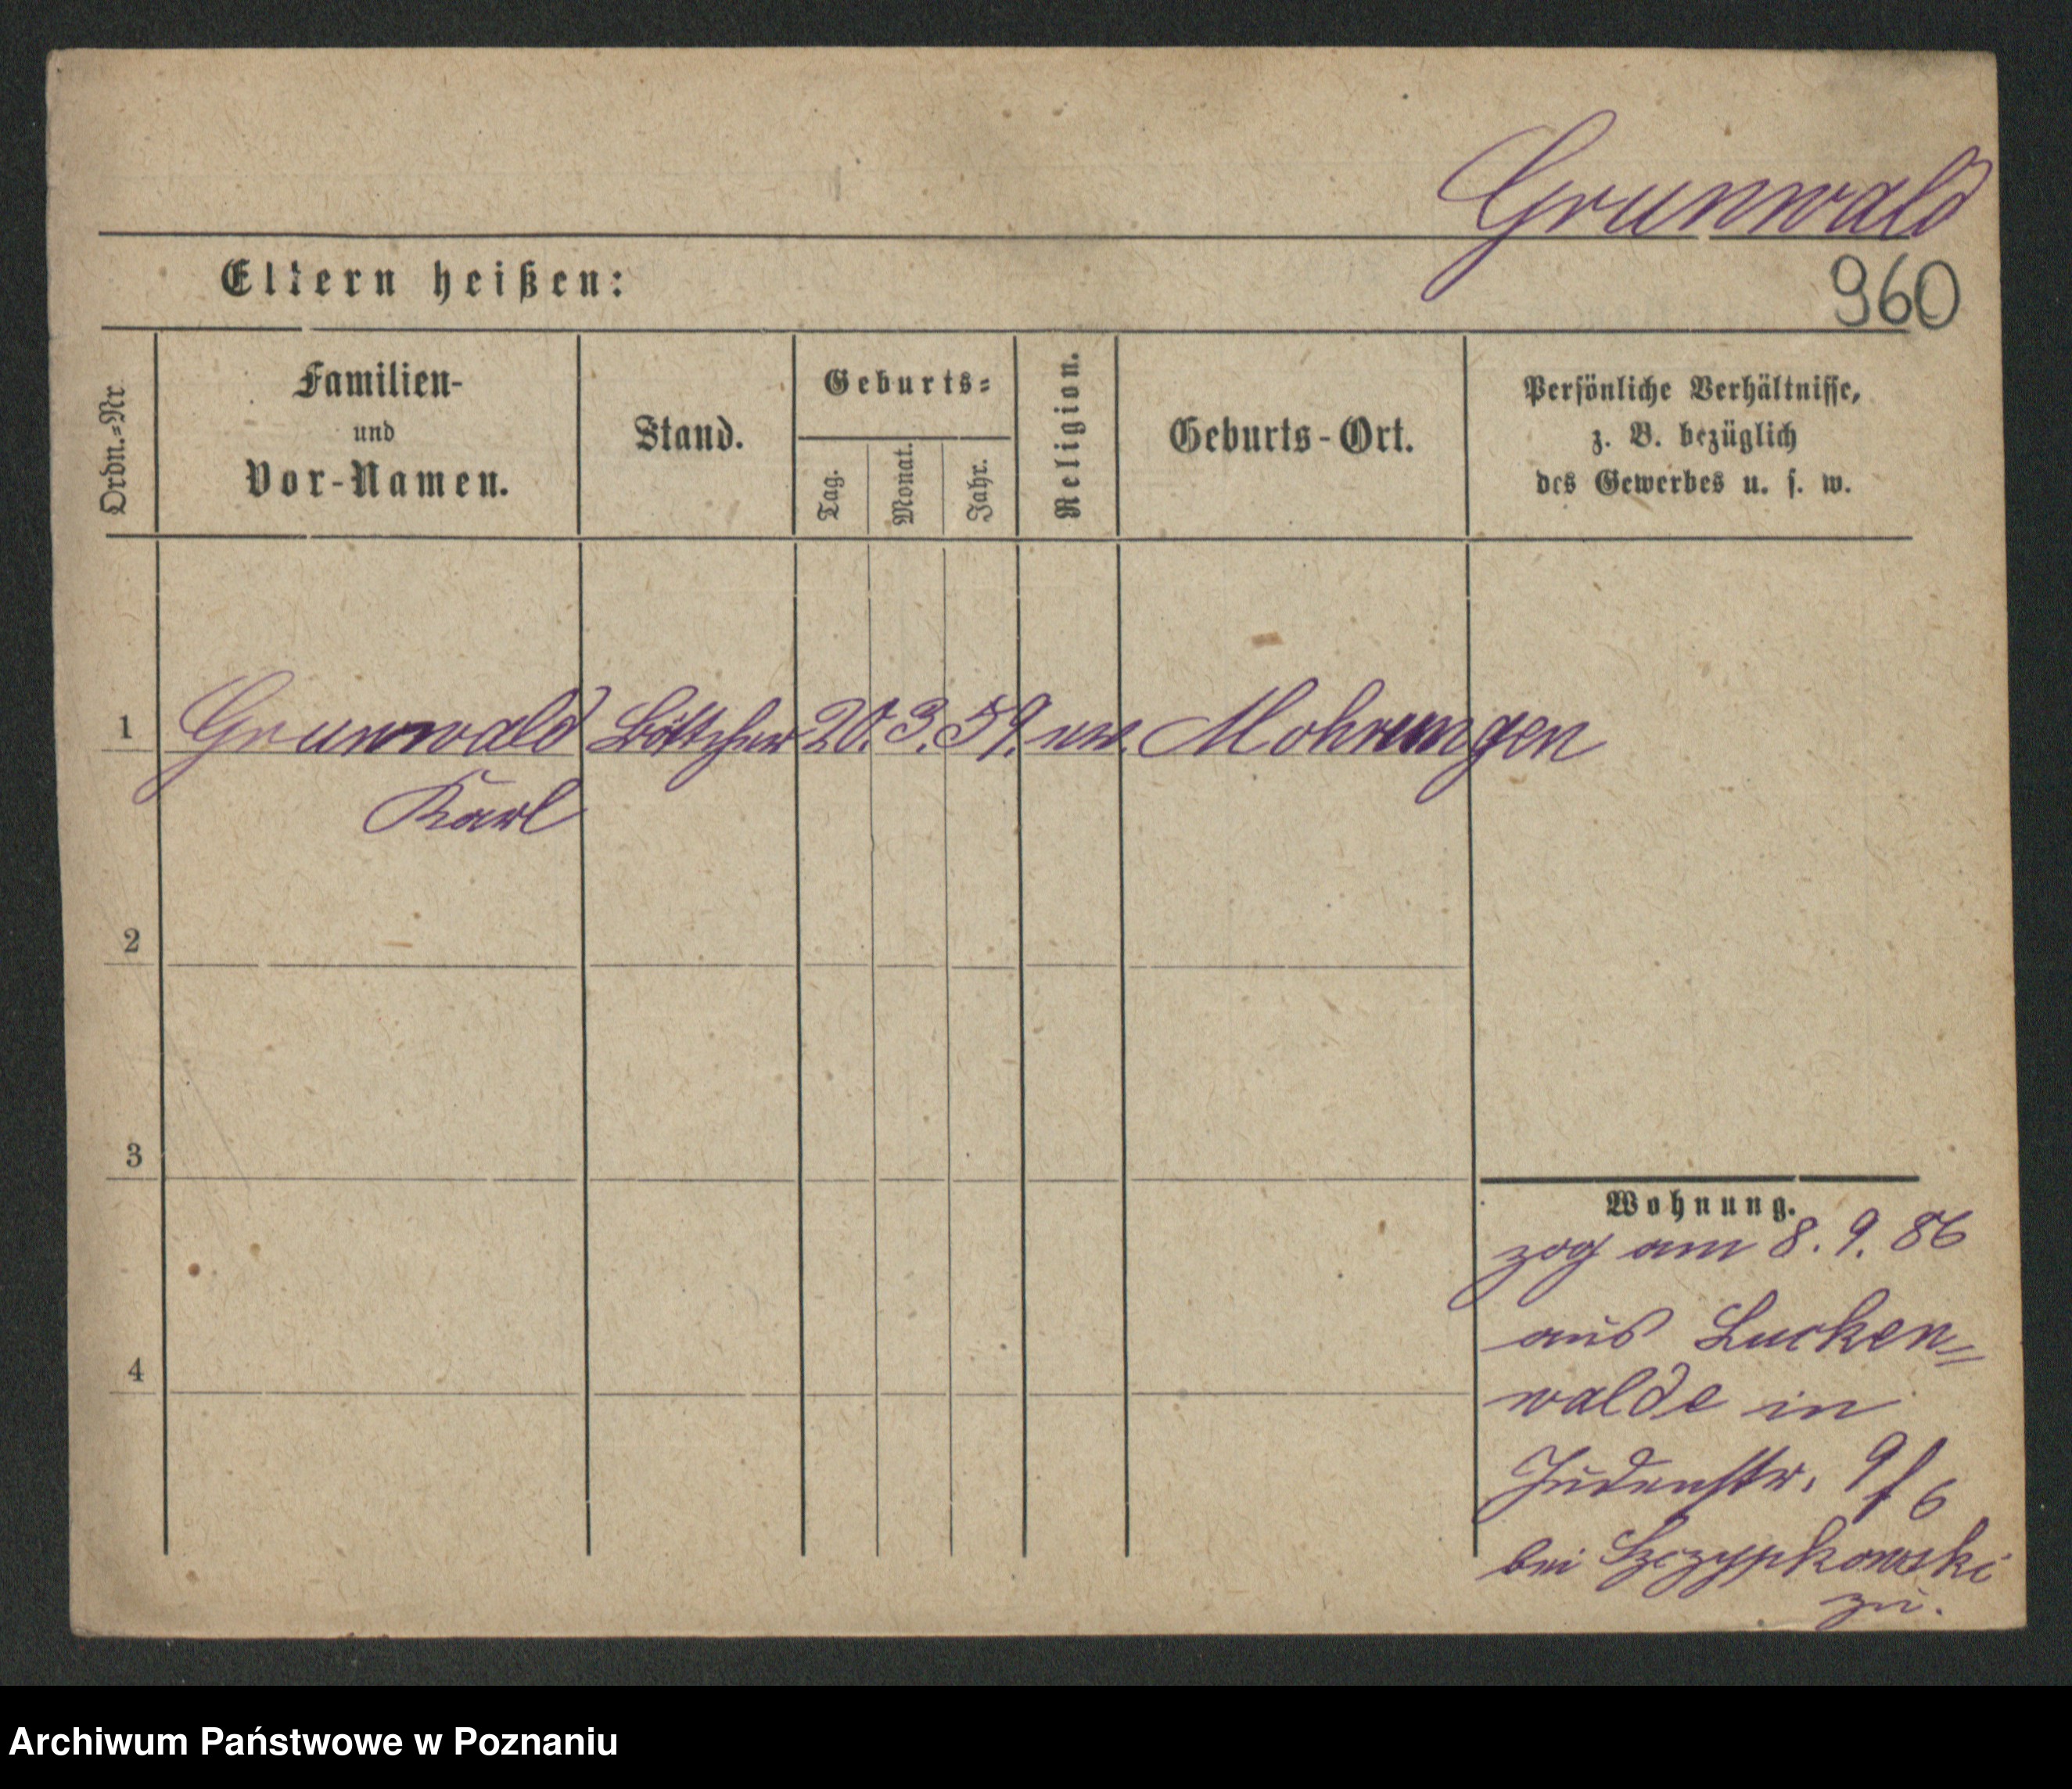 Grunwald
Eltern heißen:
960
Ordn.=Nr
Familien-
und
Vor-Namen.
Stand.
Geburts=
Tag.
Monat.
Jahr.
Religion.
Geburts-Ort.
Persönliche Verhältnisse,
z. B. bezüglich
des Gewerbes u. s. w.
1 Grunwald Böttcher 20. 3. 59. ev. Mohrungen
Karl
2
3
4
Wohnung.
zog am 8. 9. 86
aus Lucken=
walde in
Judenstr. 9/6
bei Szczypkowski
zu.
Archiwum Państwowe w Poznaniu